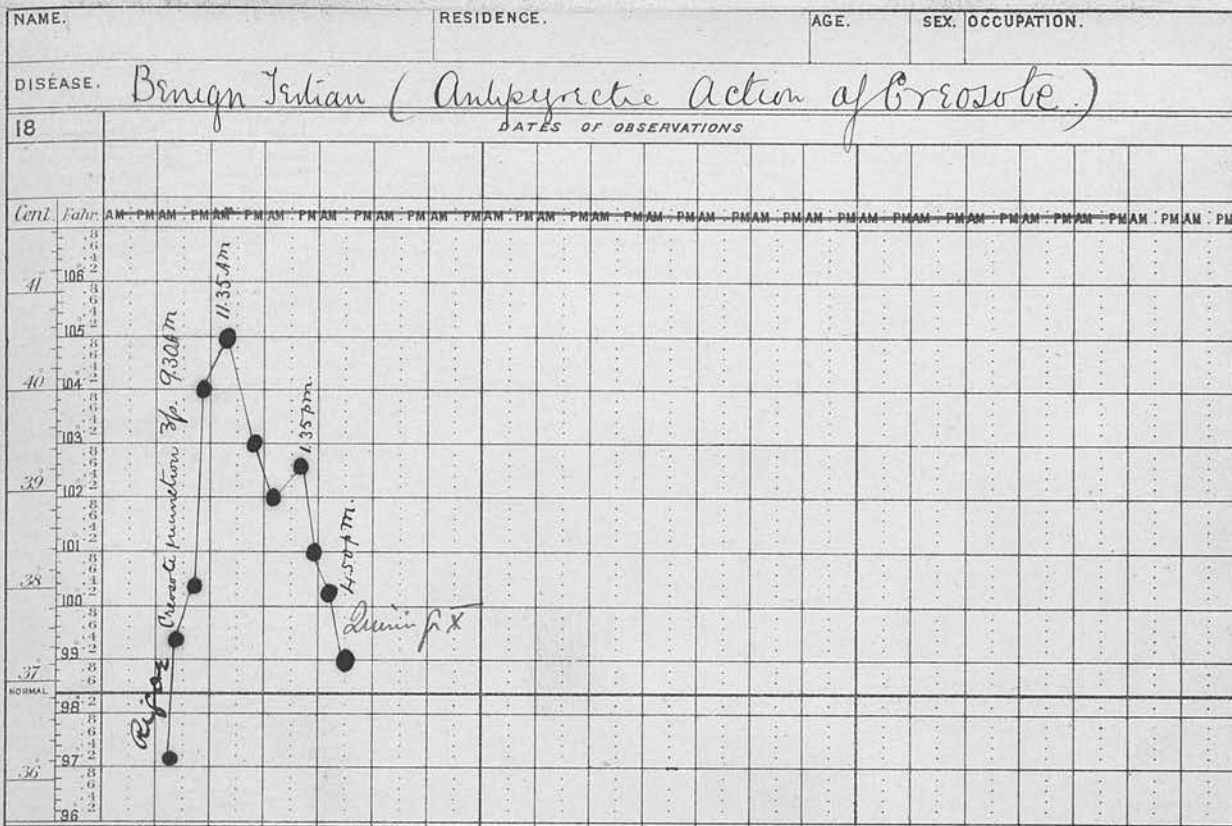 NAME. RESIDENCE. AGE. SEX. OCCUPATION.
DISEASE. Benign Tertian (Antipyrectic Action of Creosote.)
18 DATES OF OBSERVATIONS
Cent. Fahr. AM PM AM PM AM PM AM PM AM PM AM PM AM PM AM PM AM PM AM PM AM PM AM PM AM PM AM PM AM PM AM PM AM PM AM PM AM PM AM PM AM PM
41° 106°
105°
40° 104°
103°
39° 102°
101°
38° 100
99°
37°
NORMAL
98°
97°
36°
96
Rigor
Creosote inunction 9.30 AM
11.35 AM
1.35 pm.
4.50 pm.
Quinin gr X